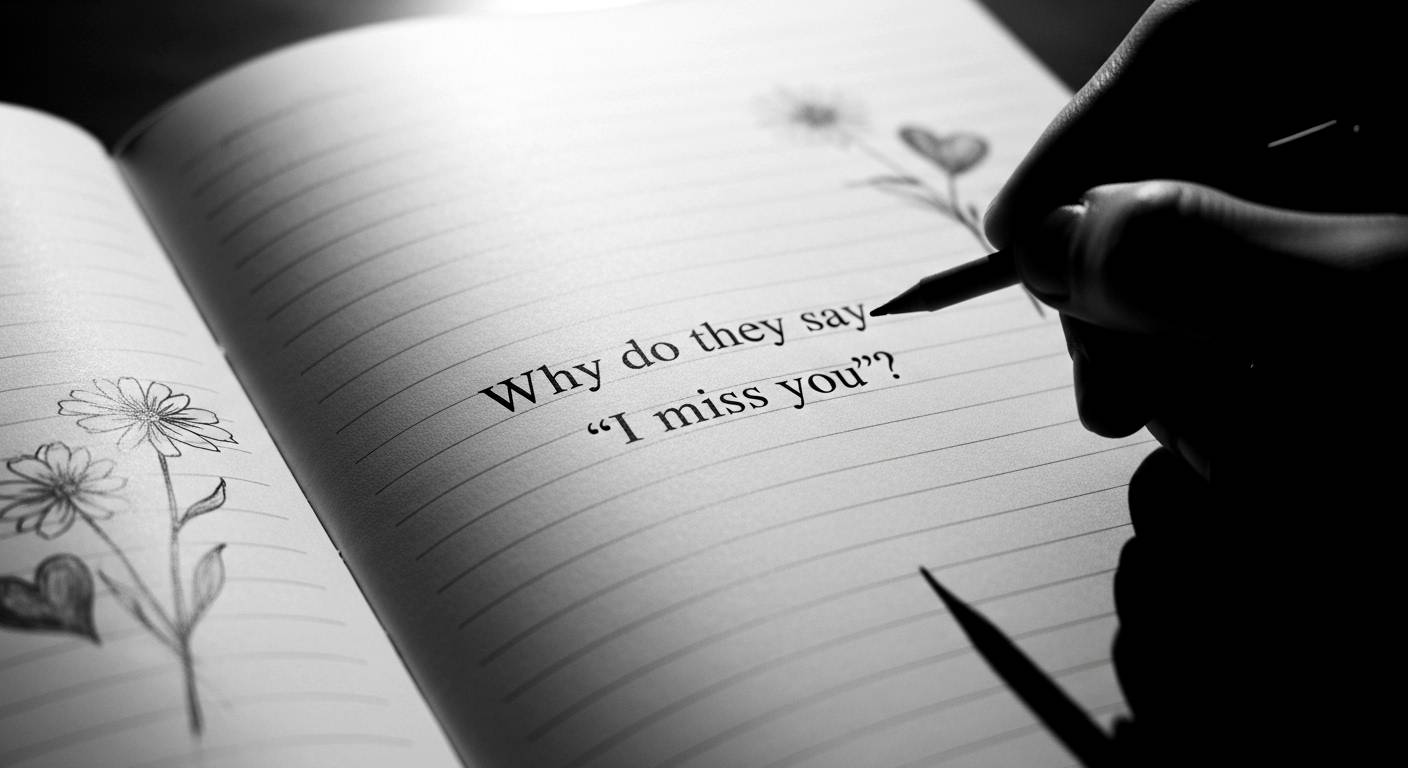 Why do they say
“I miss you”?